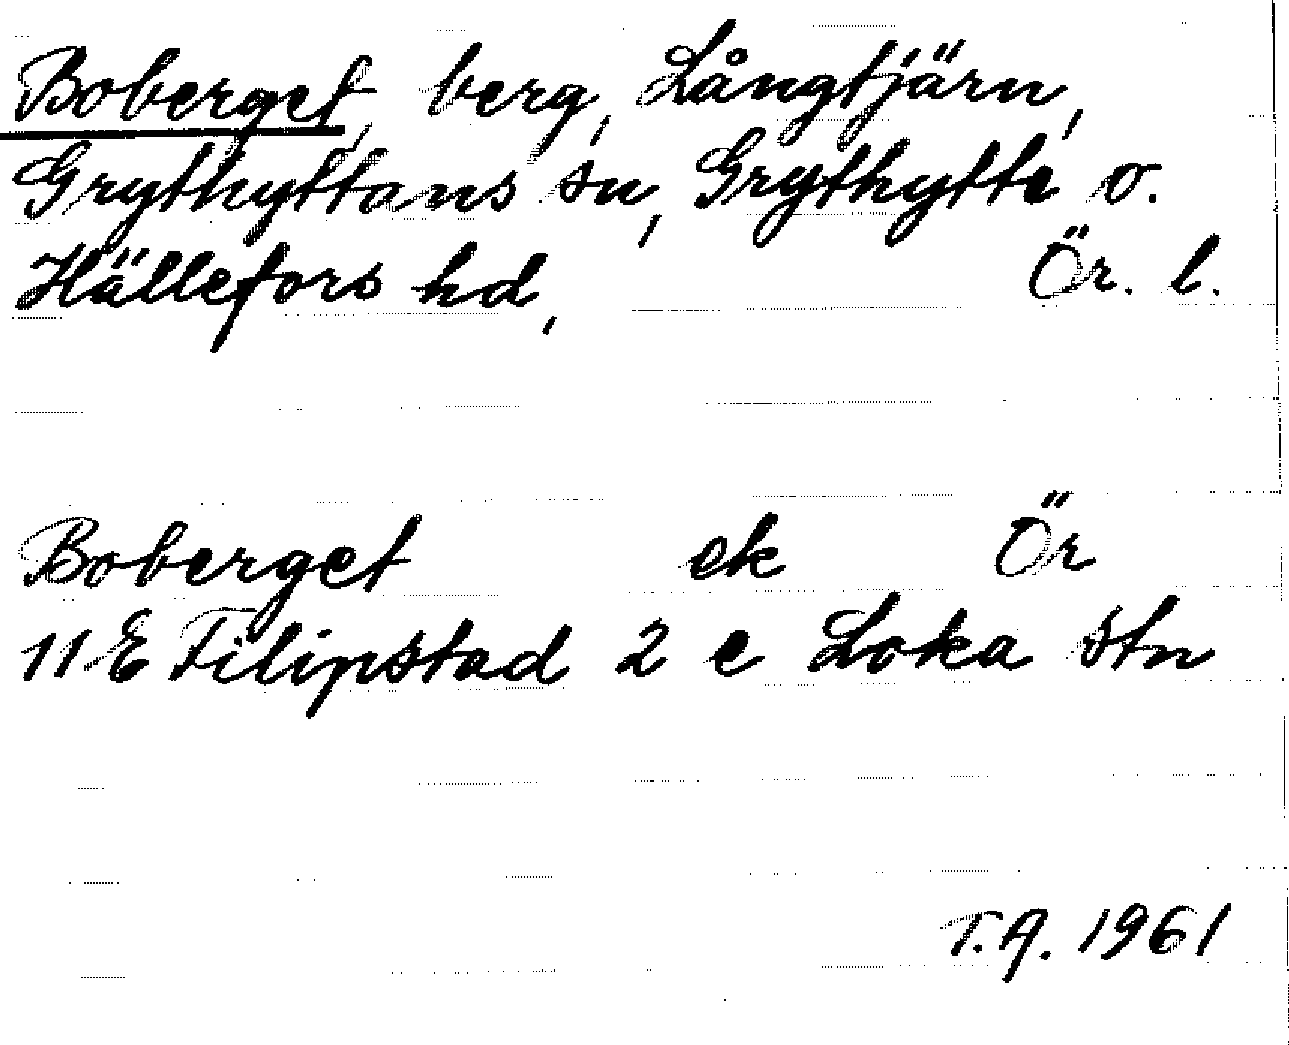 Boberget, berg, Långtjärn,
Grythyttans sn, Grythytte o.
Hällefors hd, Ör. l.
Boberget ek Ör
11 E Filipstad 2 e Loka stn
T.A. 1961